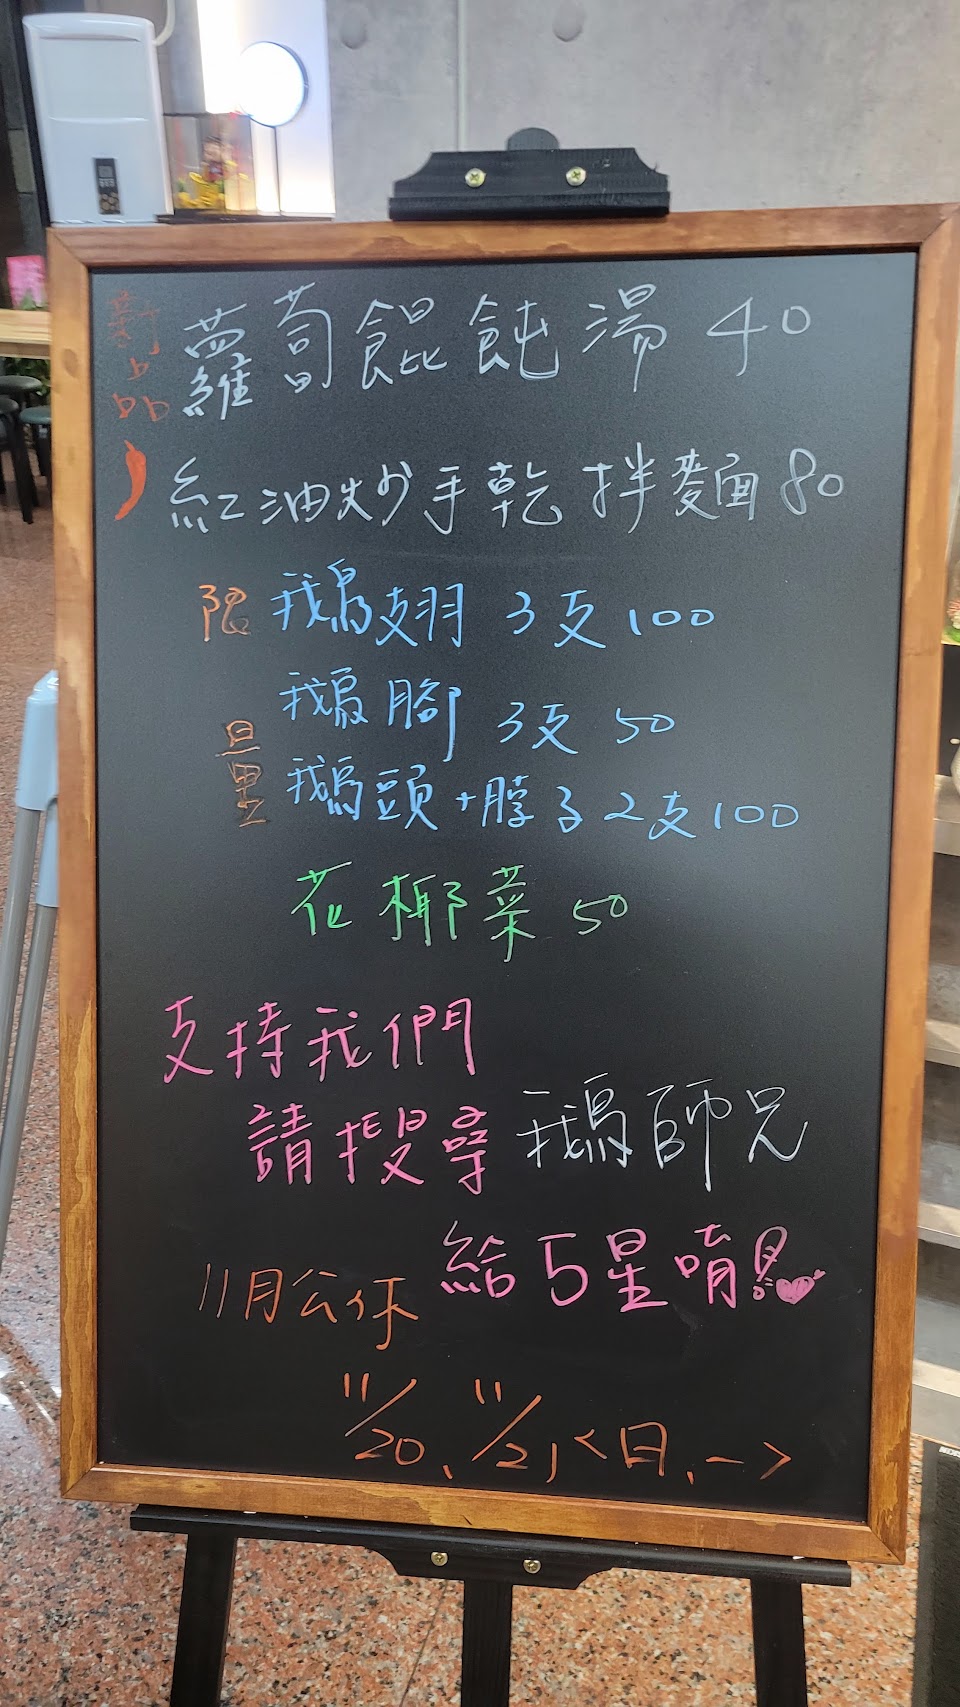 對品
蘿蔔餛飩湯 40
紅油炒手乾拌麵 80
限量
鵝翅 3支 100
鵝腳 3支 50
鵝頭+脖子 2支 100
花椰菜 50
支持我們
請搜尋 鵝師兄
給5星唷!
11月公休
11/20、11/21<日、一>